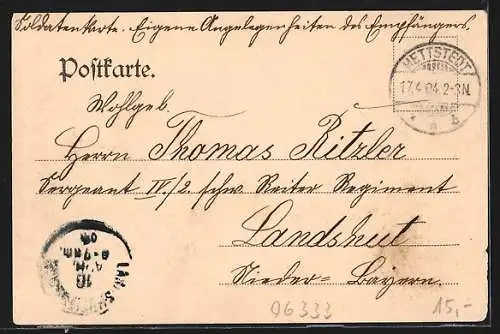 Soldatenkarte. Eigene Angelegenheiten des Empfängers.
Postkarte.
HETTSTEDT
17.4.04. 2-3N.
* a b
Wohlgeb.
Herrn Thomas Ritzler
Sergeant IV./2. schw. Reiter Regiment
Landshut
Nieder-Bayern.
LANDSHUT
18
06333
15,-